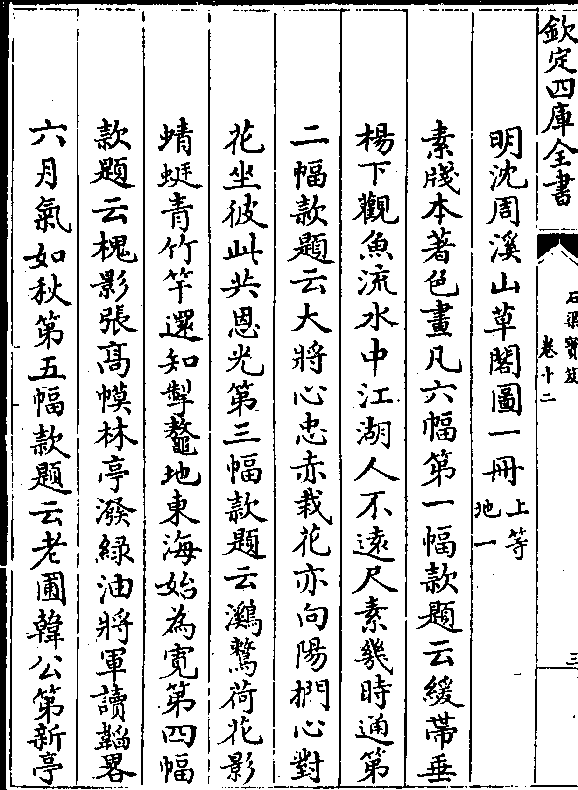 欽定四庫全書
石渠寶笈
卷十二
三
明沈周溪山草閣圖一冊上等
地一
素牋本著色畫凡六幅第一幅款題云緩帶垂
楊下觀魚流水中江湖人不遠尺素幾時通第
二幅款題云大將心忠赤栽花亦向陽捫心對
花坐彼此共恩光第三幅款題云鸂鶒荷花影
蜻蜓青竹竿還知掣鼇地東海始為寛第四幅
款題云槐影張髙幙林亭潑緑油將軍讀韜畧
六月氣如秋第五幅款題云老圃韓公第新亭